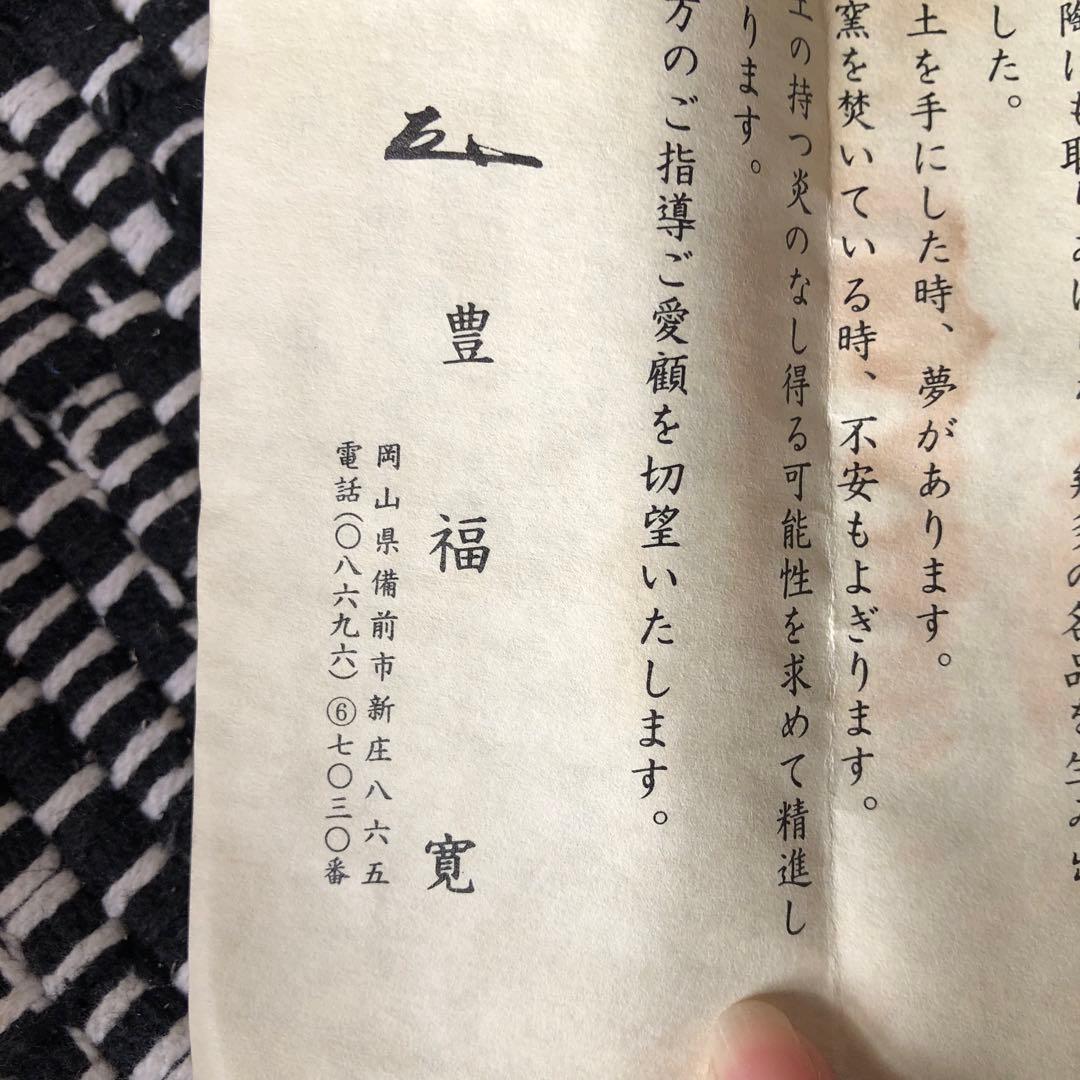 した。
土を手にした時、夢があります。
窯を焚いている時、不安もよぎります。
の持つ炎のなし得る可能性を求めて精進し
ります。
方のご指導ご愛顧を切望いたします。
豊福寛
岡山県備前市新庄八六五
電話(〇八六九六)⑥七〇三〇番